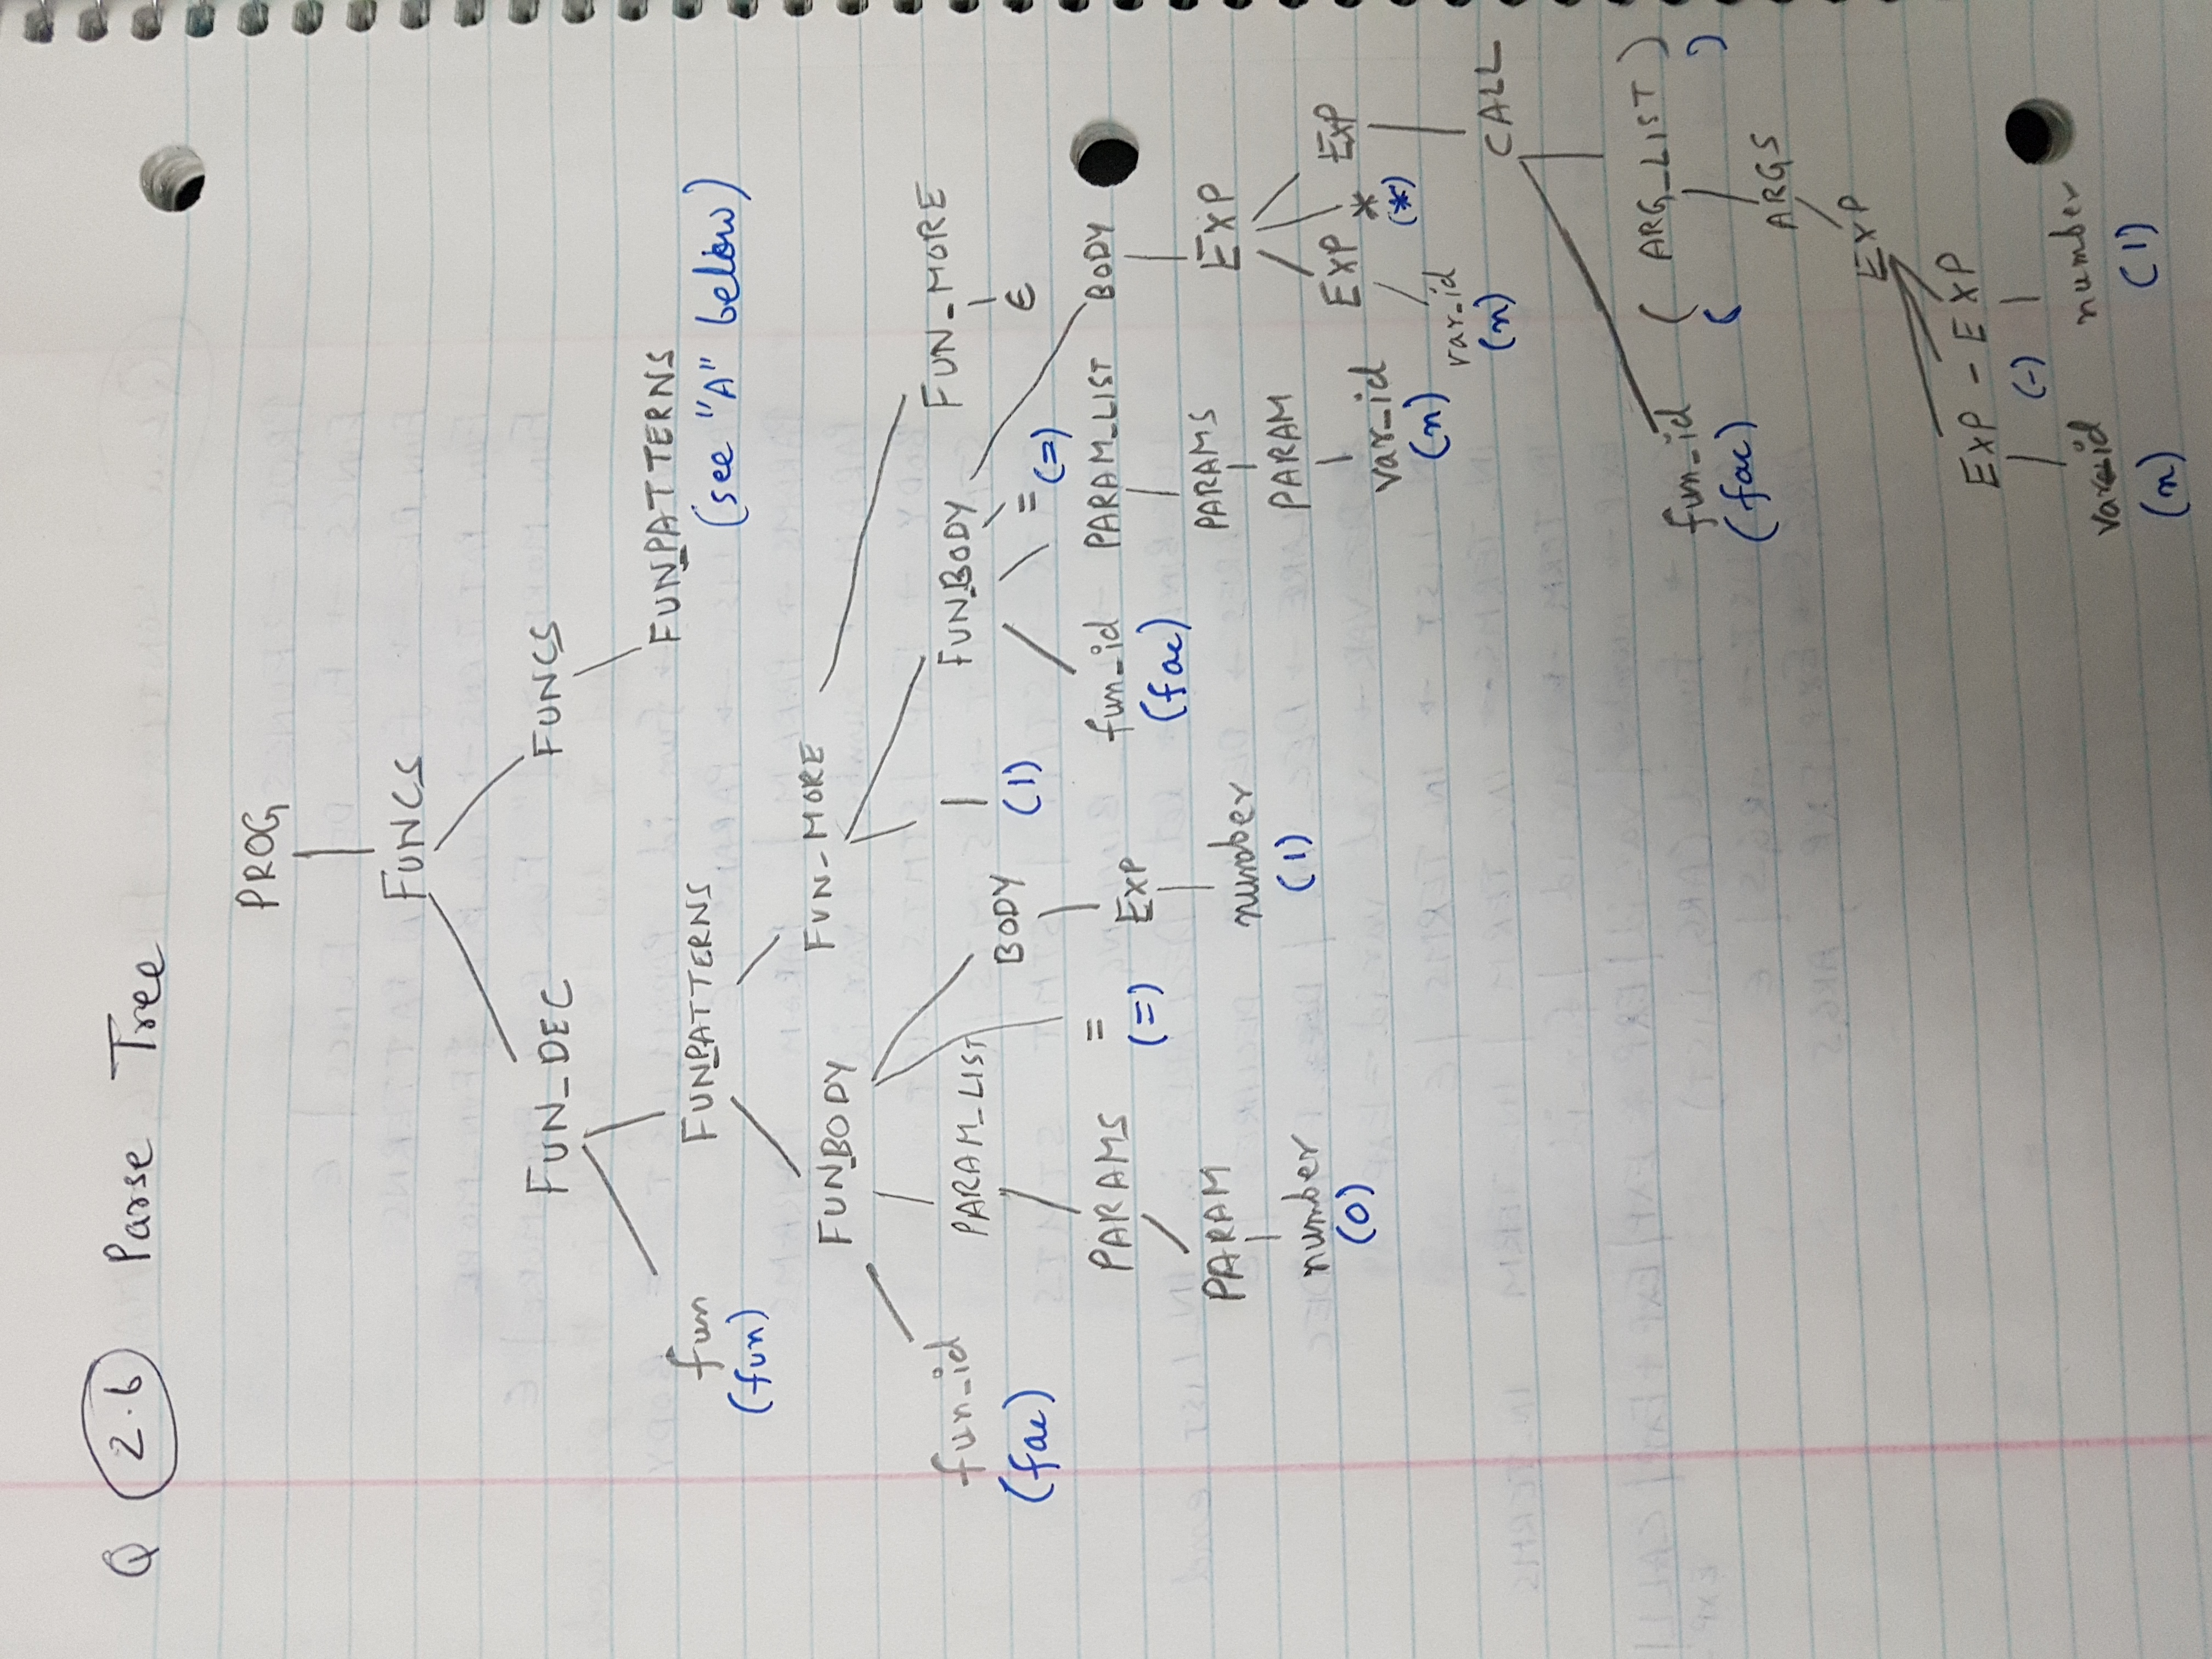 Q 2.6 Parse Tree
PROG
FUNCS
FUN_DEC FUNCS
fun FUN_PATTERNS FUN_PATTERNS
(fun) (see "A" below)
FUN_BODY FUN_MORE
fun_id PARAM_LIST BODY | FUN_BODY FUN_MORE
(fac) (|) = (=) ε
PARAMS = EXP fun_id PARAM_LIST BODY
(=) (fac)
PARAM number PARAMS EXP
number (1) PARAM EXP * EXP
(0) var_id (*)
(n) var_id
(n) CALL
fun_id ( ARG_LIST )
(fac) ( )
ARGS
EXP
EXP - EXP
(-)
var_id number
(n) (1)